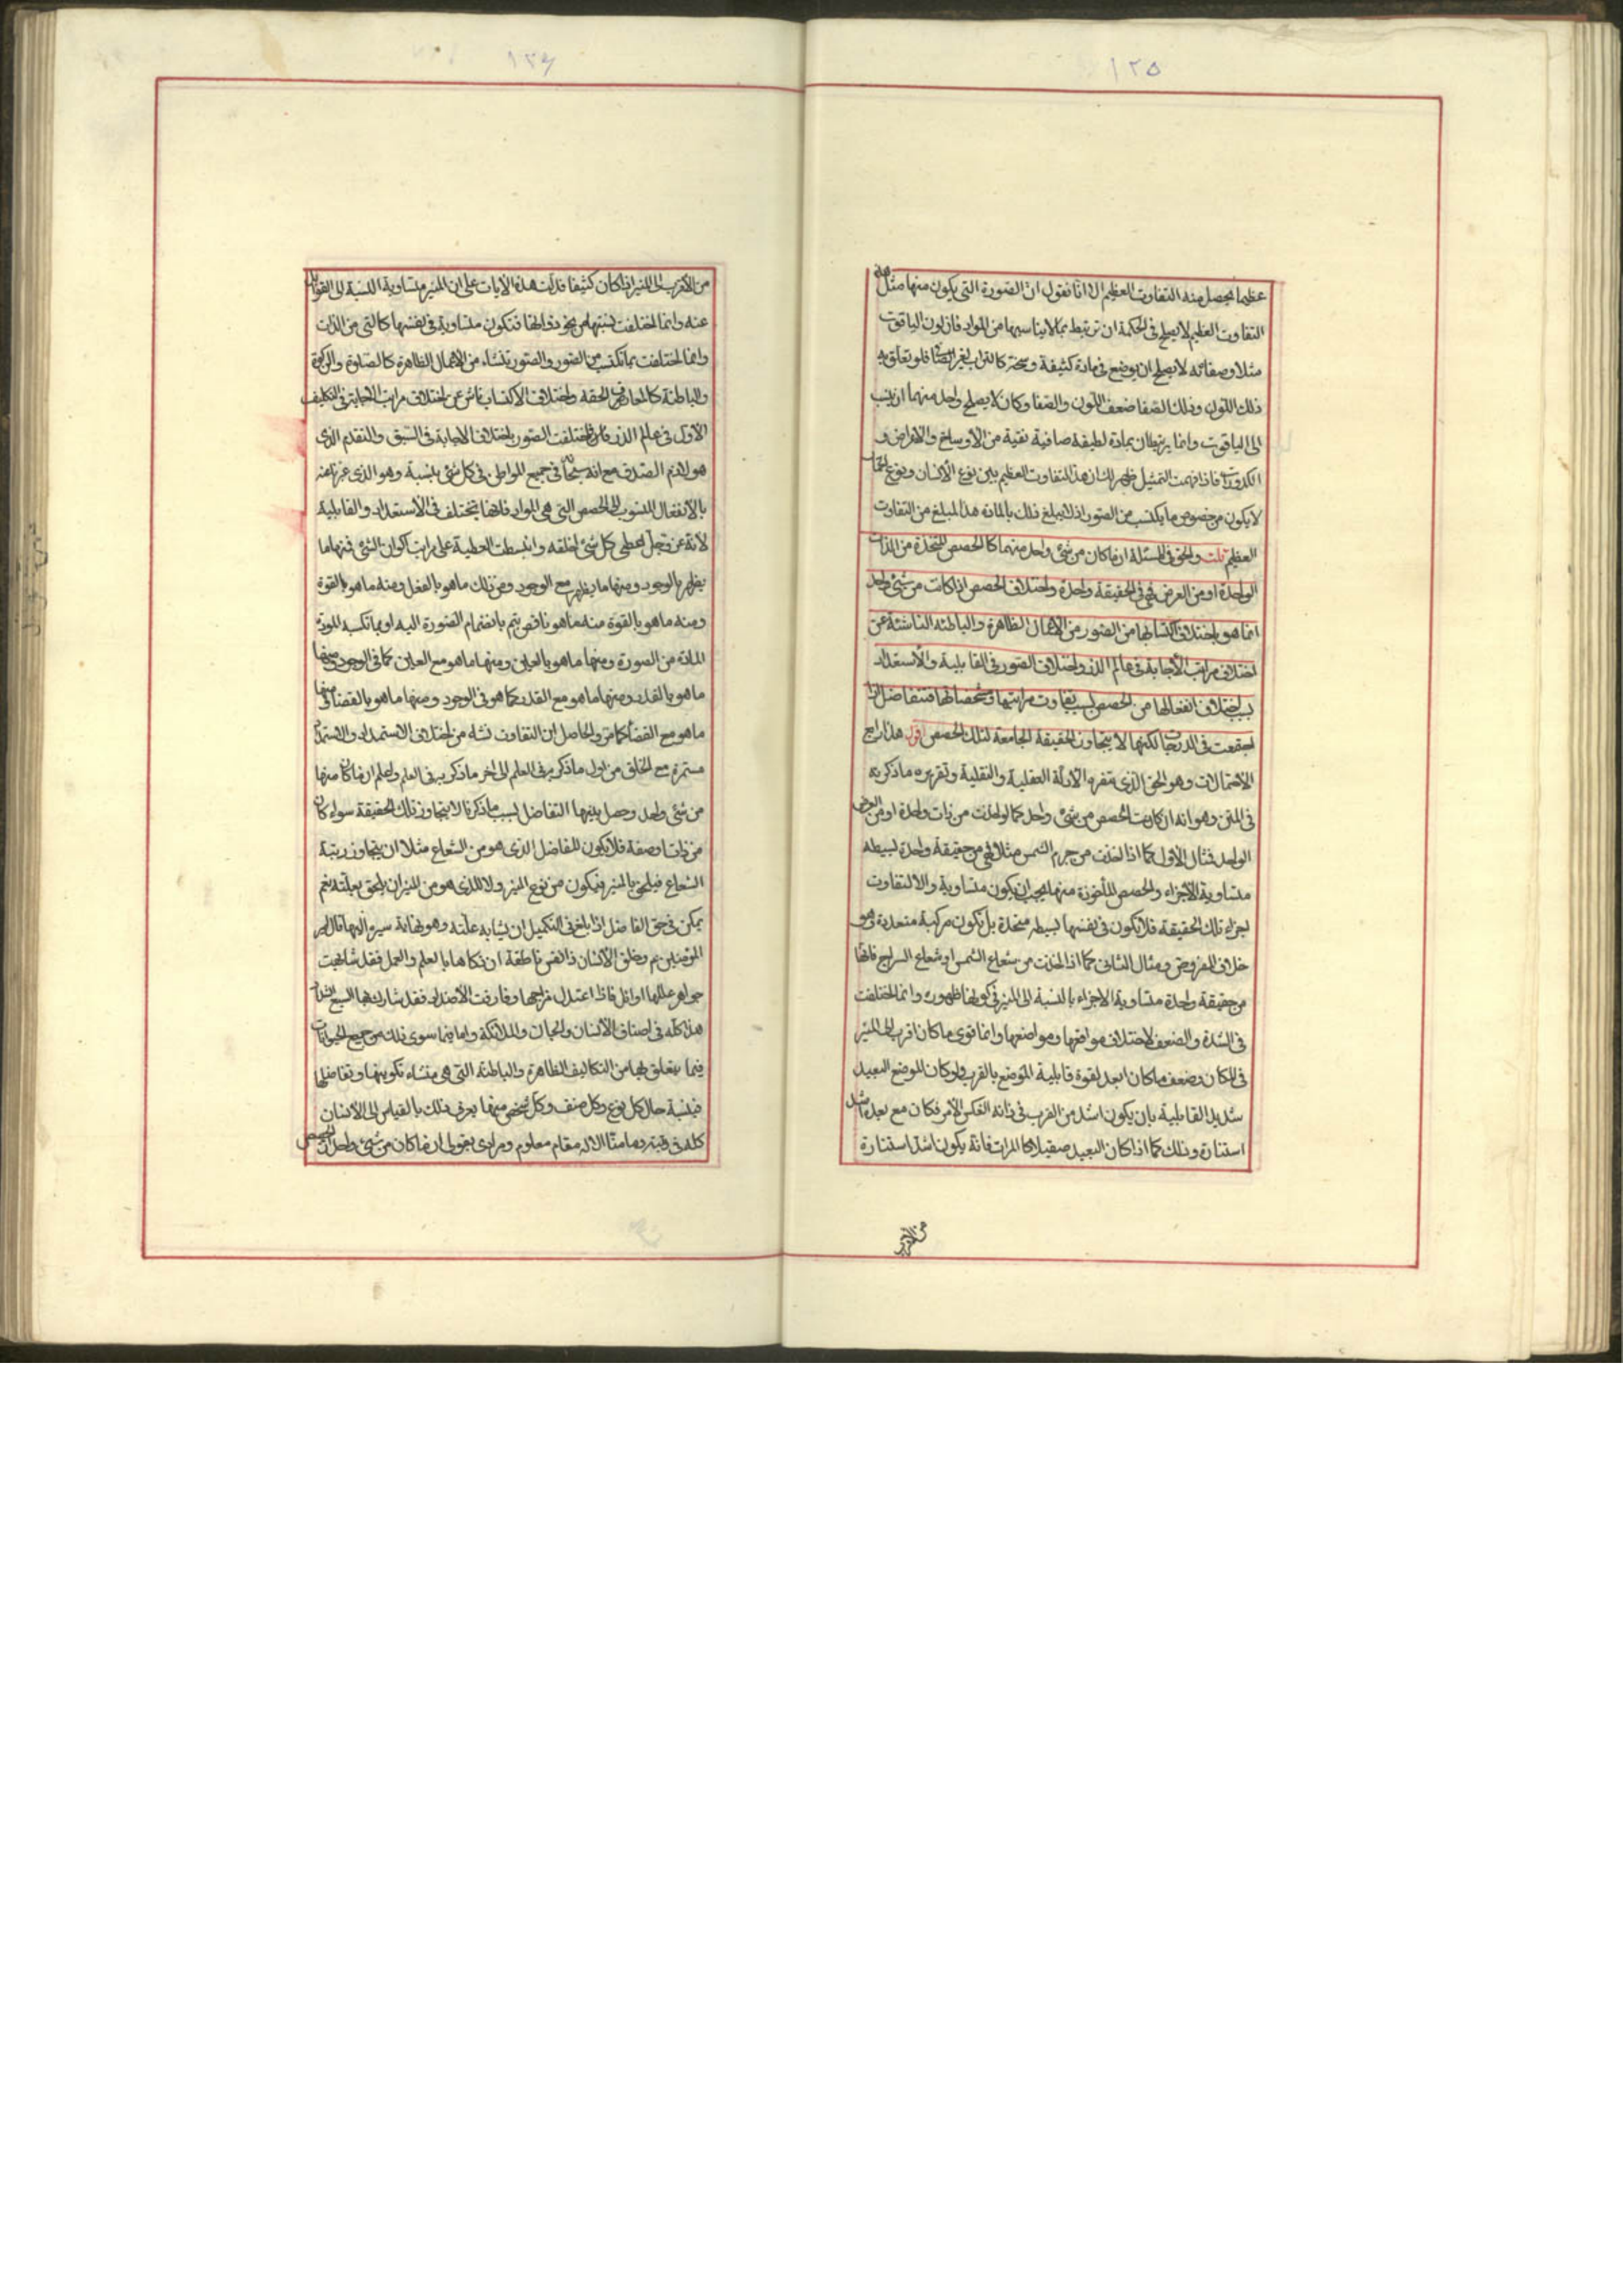 ١٢٥
عظيما يحصل منه التفاوت العظيم الا انا نقول ان الصورة التى يكون منها مثل هذا
التفاوت العظيم لا يصلح فى الحكمة ان ترتبط بما لا يناسبها من المواد فان لون الياقوت
مثلا وصفائه لا يصلح ان يوضع فى مادة كثيفة وسخة كالتراب لغير الصفا فلو تعلق به
ذلك اللون وذلك الصفا ضعف اللون والصفا وكان لا يصلح واحد منهما ان ينسب
الى الياقوت وانما يرتبطان بمادة لطيفة صافية نقية من الاوساخ والاعراض و
الكدورات فاذا فهمت التمثيل ظهر لك ان هذا التفاوت العظيم بين نوع الانسان ونوع
لا يكون من خصوص ما يكتسب من الصور اذ لا يبلغ ذلك بالمادة هذا المبلغ من التفاوت
العظيم قلت والحق فى المسئلة ان ما كان من شئ واحد منهما كالحصص المتخذة من الذات
الواحدة او من العرض فهى فى الحقيقة واحدة واختلاف الحصص اذا كانت من شئ واحد
انما هو باختلاف اكتسابها من الصور من الاعمال الظاهرة والباطنة الناشئة عن
اختلاف مراتب الاجابة فى عالم الذر واختلاف الصور فى القابلية والاستعداد
باختلاف انفعالها من الحصص بسبب تفاوت مراتبها ومشخصاتها فتتفاضل اذا
اجتمعت فى الدرجات لكنها لا يتجاوز الحقيقة الجامعة لتلك الحصص اقول هذا رابع
الاحتمالات وهو الحق الذى تقرره الادلة العقلية والنقلية وتقريره ما ذكر به
فى المتن وهو انه ان كانت الحصص من شئ واحد كما لو اخذت من ذات واحدة او من العرض
الواحد فمثال الاول كما اذا اخذت من جرم الشمس مثلا فهى من حقيقة واحدة بسيطه
متساوية الاجزاء والحصص المأخوذة منها يجب ان يكون متساوية والا لتفاوت
اجزاء تلك الحقيقة فلا يكون فى نفسها بسيطه متحدة بل تكون مركبة متعددة وهو
خلاف المفروض ومثال الثانى كما اذا اخذت من شعاع الشمس او شعاع السراج فانها
من حقيقة واحدة متساوية الاجزاء بالنسبة الى المنير فى كونها ظهوره وانما اختلفت
فى الشدة والضعف لاختلاف مواقعها ومواضعها وانما قوى ما كان اقرب الى المنير
فى المكان وضعف ما كان ابعد لقوة قابلية الموضع بالقرب ولو كان الموضع البعيد
شديد القابلية بان يكون اشد من القرب فى ذاته انعكس الامر فكان مع بعده اشد
استنارة وذلك كما اذا كان البعيد صقيلا كالمرات فانه يكون اشد استنارة
من الاقرب
١٢٦
من الاقرب الى المنير اذا كان كثيفا فدلت هذه الايات على ان المنير متساوية النسبة الى
عنه وانما اختلفت نسبتها من نحو ذواتها فتكون متساوية فى نفسها كالتى من الذات
وانما اختلفت بما تكتسب من الصور والصور تنشاء من الاعمال الظاهرة كالصلوة والزكوة
والباطنة كالمعارف الحقة واختلاف الاكتساب ناش عن اختلاف مراتب الاجابة فى التكليف
الاول فى عالم الذر فاختلفت الصور باختلاف الاجابة فى السبق والتقدم الذى
هو لازم الصدق مع انه سبحانه فى جميع المواطن فى كل شئ بنسبة وهو الذى عبرنا عنه
بالانفعال المنسوب الى الحصص التى هى المواد فانها تختلف فى الاستعداد والقابلية
لانه عز وجل اعطى كل شئ خلقه وانبسطت العطية على مراتب اكوان الشئ فمنها ما
يظهر بالوجود ومنها ما يظهر مع الوجود ومن ذلك ما هو بالفعل ومنه ما هو بالقوة
ومنه ما هو بالقوة منه ما هو ناقص يتم بانضمام الصورة اليه او بما تكسبه
المادة من الصورة ومنها ما هو بالعين ومنها ما هو مع العين كما فى الوجود ومنها
ما هو بالقدر ومنها ما هو مع القدر كما هو فى الوجود ومنها ما هو بالقضا ومنها
ما هو مع القضا كما مر والحاصل ان التفاوت نشاء من اختلاف الاستمداد والاستمداد
مستمرة مع الخلق من اول ما ذكر به فى العلم الى اخر ما ذكر به فى العلم واعلم ان ما كان منها
من شئ واحد وحصل بينها التفاضل بسبب ما ذكرنا لا يتجاوز تلك الحقيقة سواء كان
من ذات او صفة فلا يكون للفاضل الذى هو من الشعاع مثلا ان يتجاوز رتبة
الشعاع فيلحق بالمنير فيكون من نوع المنير ولا للذى هو من المنير ان يلحق بعلته نعم
يمكن فى حق الفاضل اذا بلغ فى التكميل ان يشابه علته وهو نهاية سيره اليها قال امير
المؤمنين ع وخلق الانسان ذا نفس ناطقة ان زكاها بالعلم والعمل فقد شابهت
جواهر عللها اوائل فاذا اعتدل مزاجها وفارقت الاضداد فقد شارك بها السبع الشداد
هذا كله فى اصناف الانسان والجان والملائكة واما فيما سوى ذلك من جميع الحيوانات
فيما يتعلق بها من التكاليف الظاهرة والباطنة التى هى منشاء تكوينها وتفاضلها
فبنسبة حال كل نوع وكل صنف وكل شخص منها يعرف ذلك بالقياس الى الانسان
كل فى رتبته وما منا الا له مقام معلوم ومرادى بقولى ان ما كان من شئ واحد